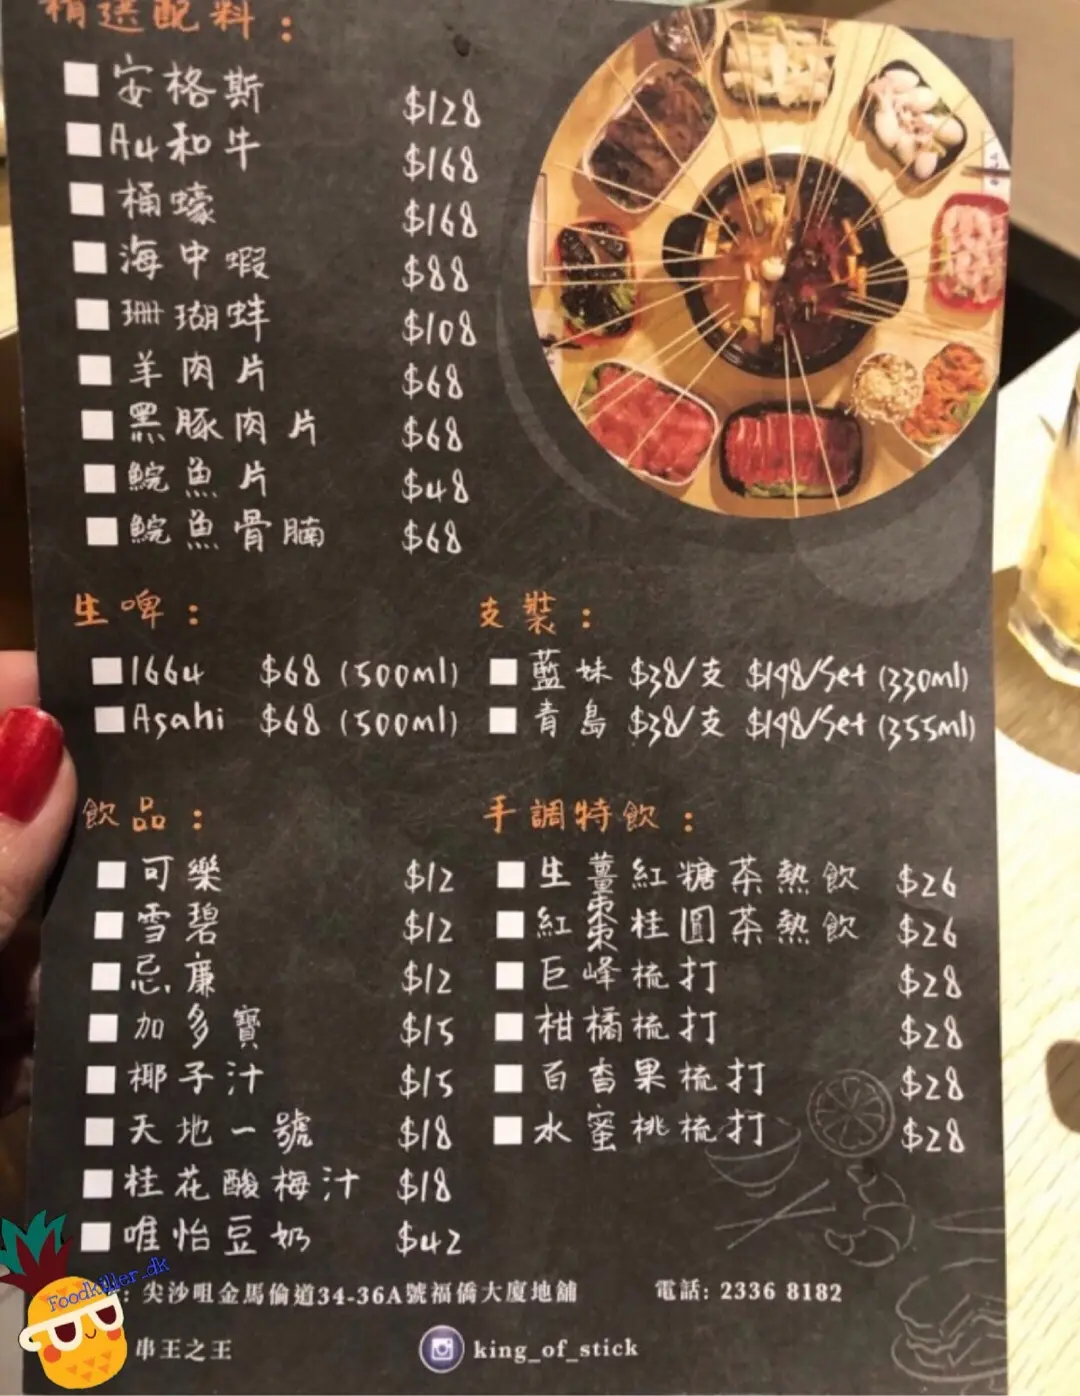 精選配料：
安格斯 $128
A4和牛 $168
桶蠔 $168
海中蝦 $88
珊瑚蚌 $108
羊肉片 $68
黑豚肉片 $68
鯇魚片 $48
鯇魚骨腩 $68
生啤：
1664 $68 (500ml)
Asahi $68 (500ml)
支裝：
藍妹 $38/支 $198/Set (330ml)
青島 $38/支 $198/Set (355ml)
飲品：
可樂 $12
雪碧 $12
忌廉 $12
加多寶 $15
椰子汁 $15
天地一號 $18
桂花酸梅汁 $18
唯怡豆奶 $42
手調特飲：
生薑紅糖茶熱飲 $26
紅棗桂圓茶熱飲 $26
巨峰梳打 $28
柑橘梳打 $28
百香果梳打 $28
水蜜桃梳打 $28
Foodkiller_dk
: 尖沙咀金馬倫道34-36A號福僑大廈地舖 電話: 2336 8182
串王之王 king_of_stick